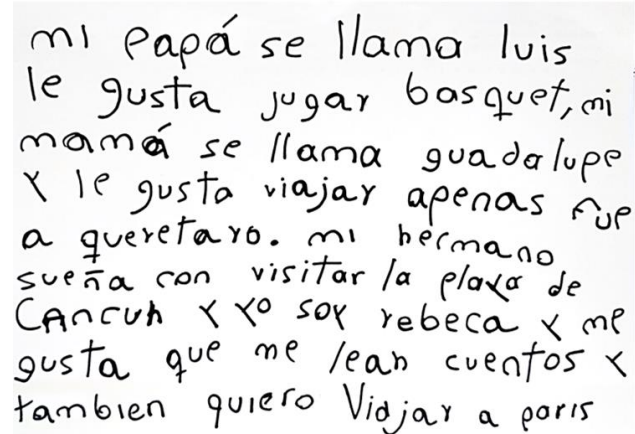 mi papá se llama luis
le gusta jugar basquet, mi
mamá se llama guadalupe
Y le gusta viajar apenas fue
a queretaro. mi hermano
sueña con visitar la playa de
CAncun Y Yo soy rebeca Y me
gusta que me lean cuentos Y
tambien quiero Viajar a paris